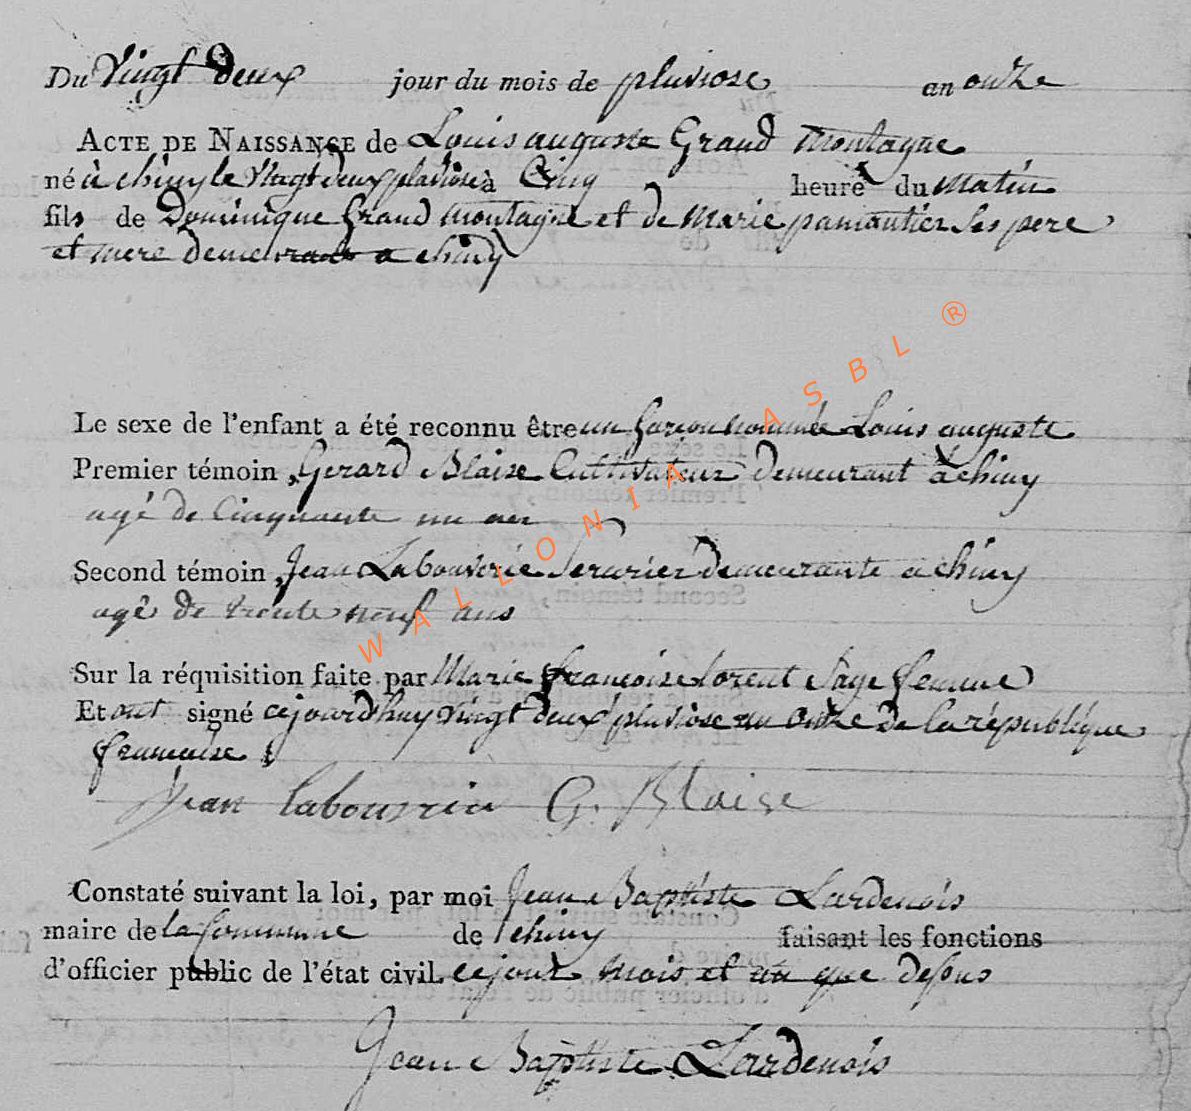 Du Vingt deux jour du mois de pluviose an onze
ACTE DE NAISSANCE de Louis auguste Grand montagne
né à chiny le Vingt deux pluviose à Cinq heure du matin
fils de Dominique Grand montagne et de Marie pamoutier Ses pere
et mere demeurans a chiny
Le sexe de l'enfant a été reconnu être un Garçon nommé Louis auguste
Premier témoin, Gerard Blaise Cultivateur demeurant à chiny
agé de Cinquante un an
Second témoin, Jean Labouverie Serurier demeurante a chiny
agé de trente neuf ans
Sur la réquisition faite par Marie françoise lorent Sage femme
Et ont signé cejourdhuy vingt deux pluviose an onze de la république
francaise
Jean labouvrie G. Blaise
Constaté suivant la loi, par moi Jean Baptiste Lardenois
maire de la Commune de chiny faisant les fonctions
d'officier public de l'état civil ce jour mois et an que dessus
Jean Baptiste Lardenois
WALLONIA ASBL ®